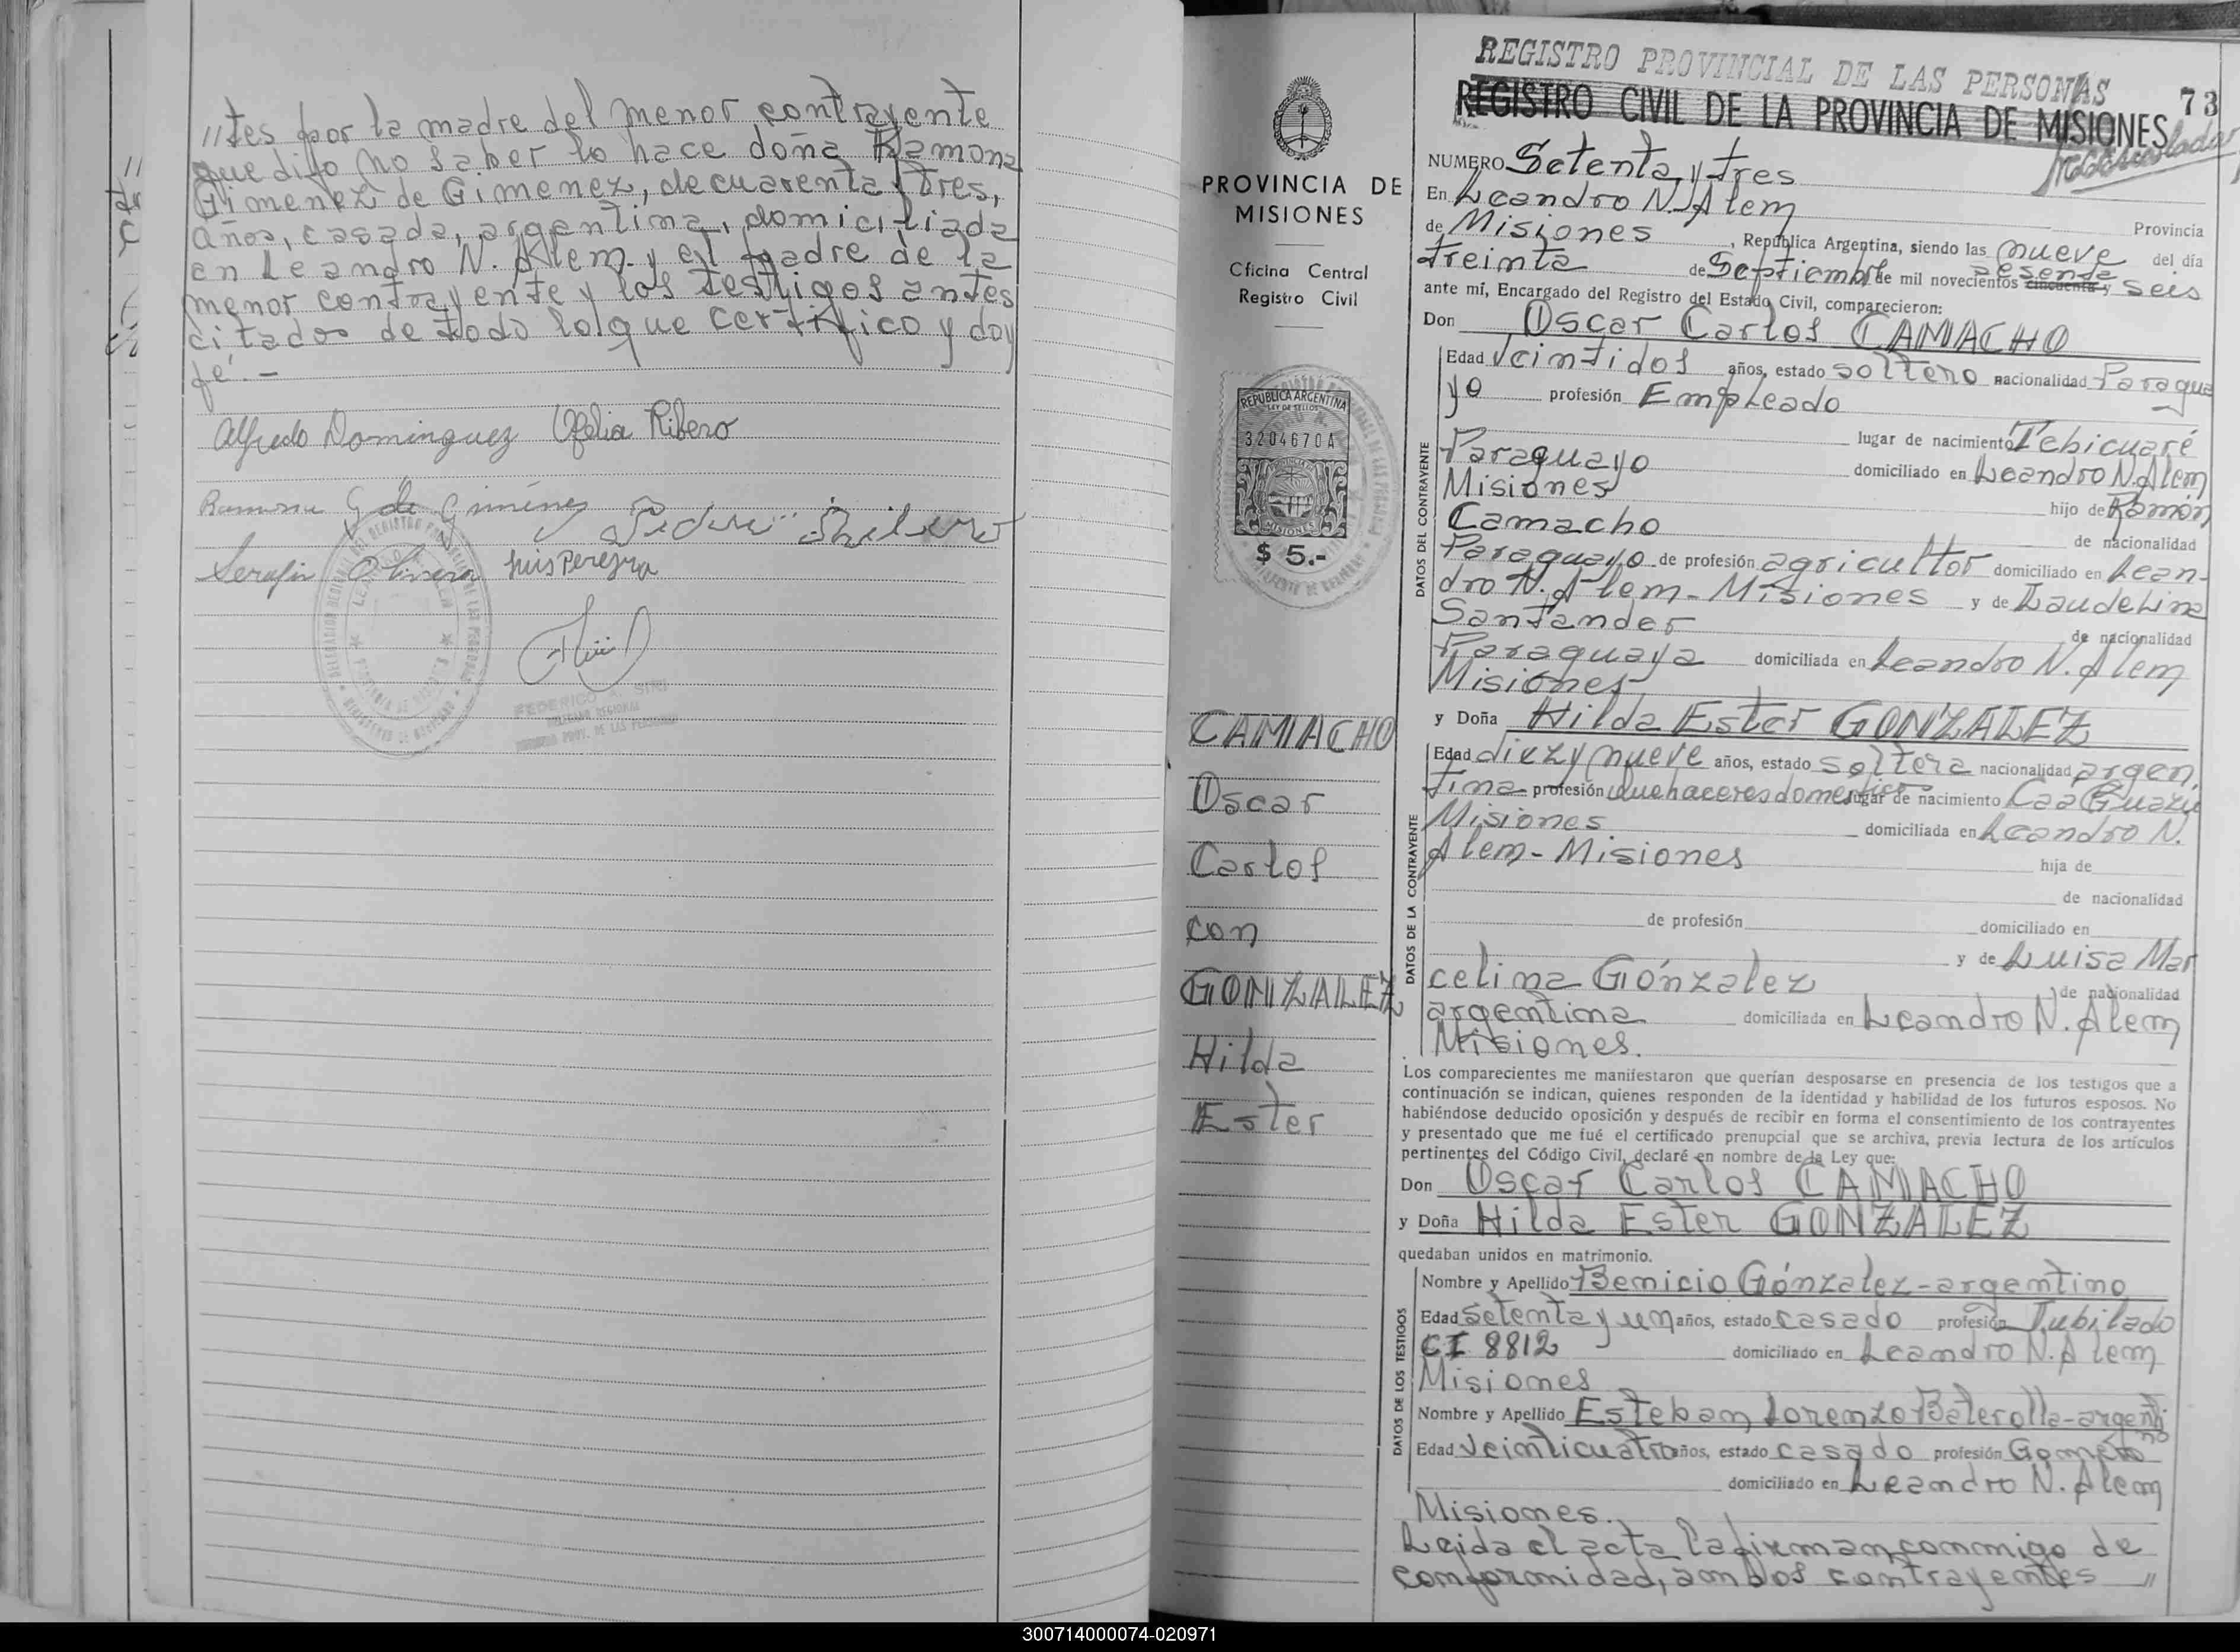 //tes por la madre del menor contrayente
que dijo no saber lo hace doña Ramona
Gimenez de Gimenez, de cuarenta y tres,
años, casada, argentina, domiciliada
en Leandro N. Alem y el padre de la
menor contrayente y los testigos antes
citados de todo lo que certifico y doy
fé.-
Alfredo Dominguez Ofelia Ribero
Ramona G de Giménez
Serafin Olivera Luis Pereyra
FEDERICO
DELEGADO REGIONAL
REGISTRO PROV. DE LAS PERSONAS
PROVINCIA DE
MISIONES
Oficina Central
Registro Civil
REPUBLICA ARGENTINA
LEY DE SELLOS
3204670A
MISIONES
$ 5.-
CAMACHO
Oscar
Carlos
con
GONZALEZ
Hilda
Ester
REGISTRO PROVINCIAL DE LAS PERSONAS
REGISTRO CIVIL DE LA PROVINCIA DE MISIONES
73
NUMERO Setenta y tres
En Leandro N. Alem
Provincia
de Misiones, República Argentina, siendo las nueve del día
treinta de Septiembre de mil novecientos cincuenta y sesenta seis
ante mí, Encargado del Registro del Estado Civil, comparecieron:
Don Oscar Carlos CAMACHO
DATOS DEL CONTRAYENTE
Edad Veintidos años, estado soltero nacionalidad Paragua
yo profesión Empleado
lugar de nacimiento Tebicuaré
Paraguayo domiciliado en Leandro N. Alem
Misiones hijo de Ramón
Camacho de nacionalidad
Paraguayo de profesión agricultor domiciliado en Lean-
dro N. Alem - Misiones y de Laudelina
Santander de nacionalidad
Paraguaya domiciliada en Leandro N. Alem
Misiones
y Doña Hilda Ester GONZALEZ
DATOS DE LA CONTRAYENTE
Edad diez y nueve años, estado soltera nacionalidad argen.
tina profesión Quehaceres domesticos lugar de nacimiento Caá Guazú
Misiones domiciliada en Leandro N.
Alem - Misiones hija de
de nacionalidad
de profesión domiciliado en
y de Luisa Mar
celina Gónzalez de nacionalidad
argentina domiciliada en Leandro N. Alem
Misiones.
Los comparecientes me manifestaron que querían desposarse en presencia de los testigos que a
continuación se indican, quienes responden de la identidad y habilidad de los futuros esposos. No
habiéndose deducido oposición y después de recibir en forma el consentimiento de los contrayentes
y presentado que me fué el certificado prenupcial que se archiva, previa lectura de los artículos
pertinentes del Código Civil, declaré en nombre de la Ley que:
Don Oscar Carlos CAMACHO
y Doña Hilda Ester GONZALEZ
quedaban unidos en matrimonio.
DATOS DE LOS TESTIGOS
Nombre y Apellido Benicio Gónzalez - argentino
Edad setenta y un años, estado casado profesión Jubilado
CI 8812 domiciliado en Leandro N. Alem
Misiones
Nombre y Apellido Esteban Lorenzo Baterolla - argenti
no
Edad veinticuatro años, estado casado profesión Gomero
domiciliado en Leandro N. Alem
Misiones.
Leida el acta la firman conmigo de
conformidad, ambos contrayentes //
300714000074-020971